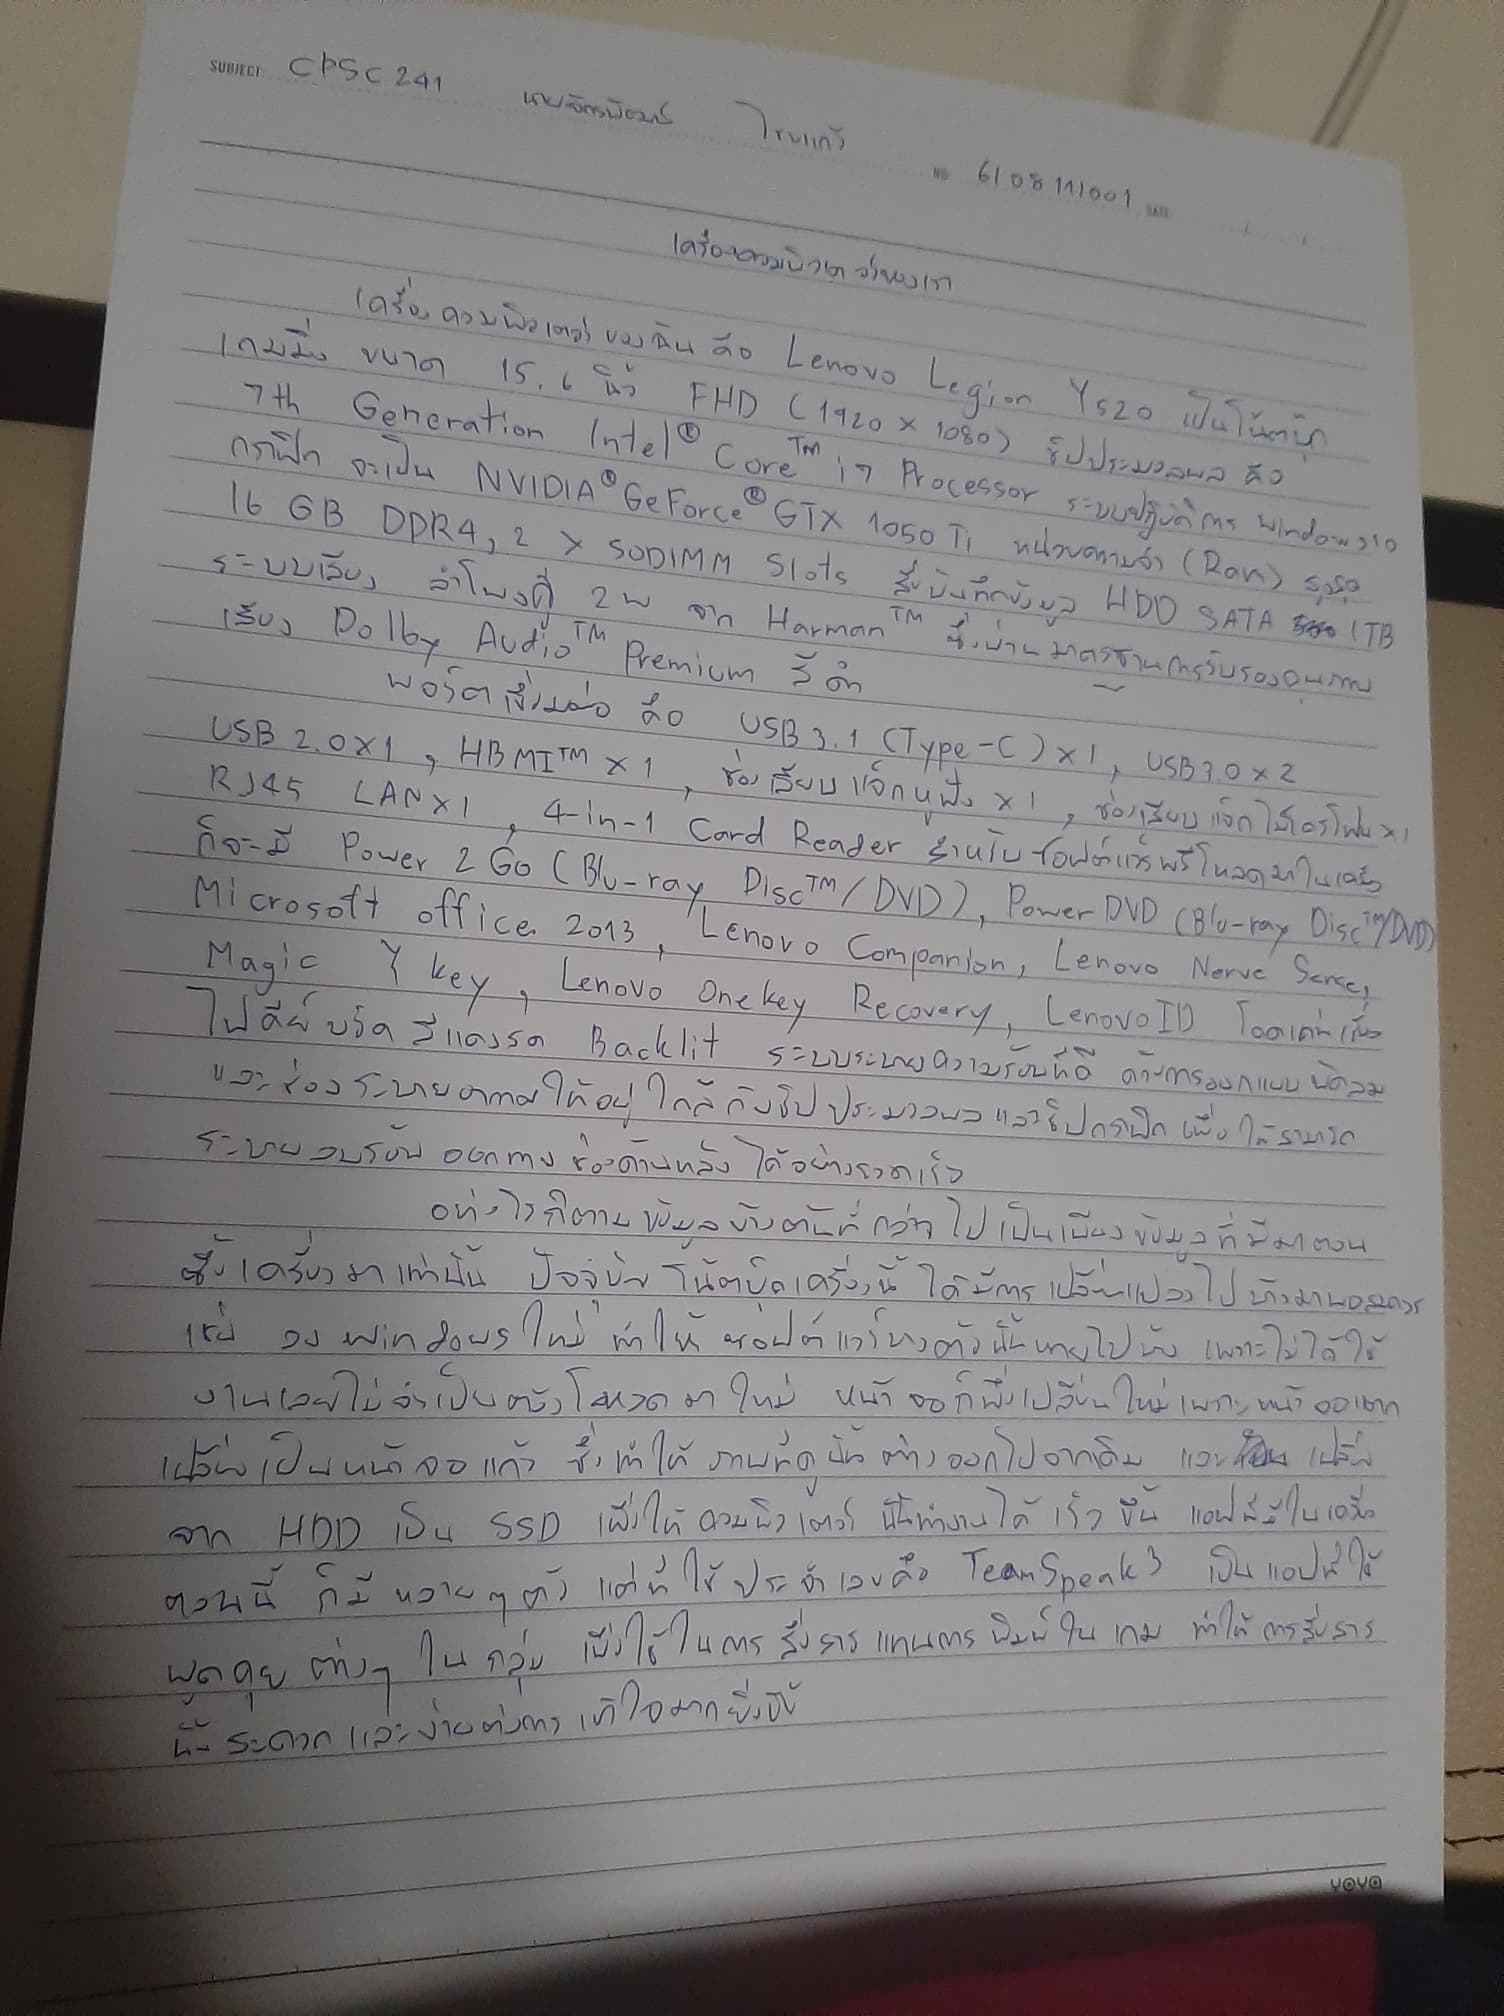 SUBJECT CPSC 241 ไขแก้ว NO. 6108111001 DATE
เครื่องคอมพิวเตอร์ของเรา
เครื่องคอมพิวเตอร์ของฉันคือ Lenovo Legion Y520 เป็นโน้ตบุ๊ก
เกมมิ่ง ขนาด 15.6 นิ้ว FHD (1920 x 1080) ชิปประมวลผล คือ
7th Generation Intel® Core™ i7 Processor ระบบปฏิบัติการ windows10
กราฟิก จะเป็น NVIDIA® GeForce® GTX 1050 Ti หน่วยความจำ (Ram) สูงสุด
16 GB DDR4, 2 x SODIMM Slots สื่อบันทึกข้อมูล HDD SATA 1TB
ระบบเสียง ลำโพงคู่ 2W จาก Harman™ ซึ่งผ่านมาตรฐานการรับรองคุณภาพ
เสียง Dolby Audio™ Premium สีดำ
พอร์ตเชื่อมต่อ คือ USB 3.1 (Type-C) x1, USB 3.0 x 2
USB 2.0 x 1, HBMI™ x 1, ช่องเสียบแจ็กหูฟัง x 1, ช่องเสียบแจ็กไมโครโฟน x1
RJ45 LAN x 1, 4-in-1 Card Reader สำหรับซอฟต์แวร์พรีโหลดมาในเครื่อง
ก็จะมี Power 2 Go (Blu-ray Disc™/DVD), Power DVD (Blu-ray Disc™/DVD)
Microsoft office 2013, Lenovo Companion, Lenovo Nerve Sense,
Magic Y key, Lenovo Onekey Recovery, Lenovo ID โดดเด่นเรื่อง
ไฟคีย์บอร์ด สีแดงรด Backlit ระบบระบายความร้อนที่ดี ด้วยการออกแบบพัดลม
และช่องระบายอากาศให้อยู่ใกล้กับชิปประมวลผลและชิปกราฟิก เพื่อให้สามารถ
ระบายลมร้อน ออกทางช่องด้านหลังได้อย่างรวดเร็ว
อย่างไรก็ตามข้อมูลข้างต้นที่กล่าวไปเป็นเพียงข้อมูลที่มีมาตอน
ซื้อเครื่องมาเท่านั้น ปัจจุบัน โน้ตบุ๊คเครื่องนี้ ได้มีการเปลี่ยนแปลงไปบ้างมาพอสมควร
เช่น ลง windows ใหม่ ทำให้ ซอฟต์แวร์บางตัวนั้นหายไปบ้าง เพราะไม่ได้ใช้
งานเลยไม่จำเป็นต้องโหลดมาใหม่ หน้าจอก็พึ่งเปลี่ยนใหม่เพราะหน้าจอแตก
เปลี่ยนเป็นหน้าจอแก้ว ซึ่งทำให้ ภาพที่ดูนั้นต่างออกไปจากเดิม และ เปลี่ยน
จาก HDD เป็น SSD เพื่อให้คอมพิวเตอร์ นั้นทำงานได้เร็วขึ้น แอปที่มีในเครื่อง
ตอนนี้ ก็มีหลายๆตัว แต่ที่ใช้ประจำเลยคือ TeamSpeak3 เป็นแอปที่ใช้
พูดคุยต่างๆ ในกลุ่ม เพื่อใช้ในการสื่อสาร แทนการพิมพ์ในเกม ทำให้การสื่อสาร
นั้นสะดวกและง่ายต่อการเข้าใจมากยิ่งขึ้น
YOYO